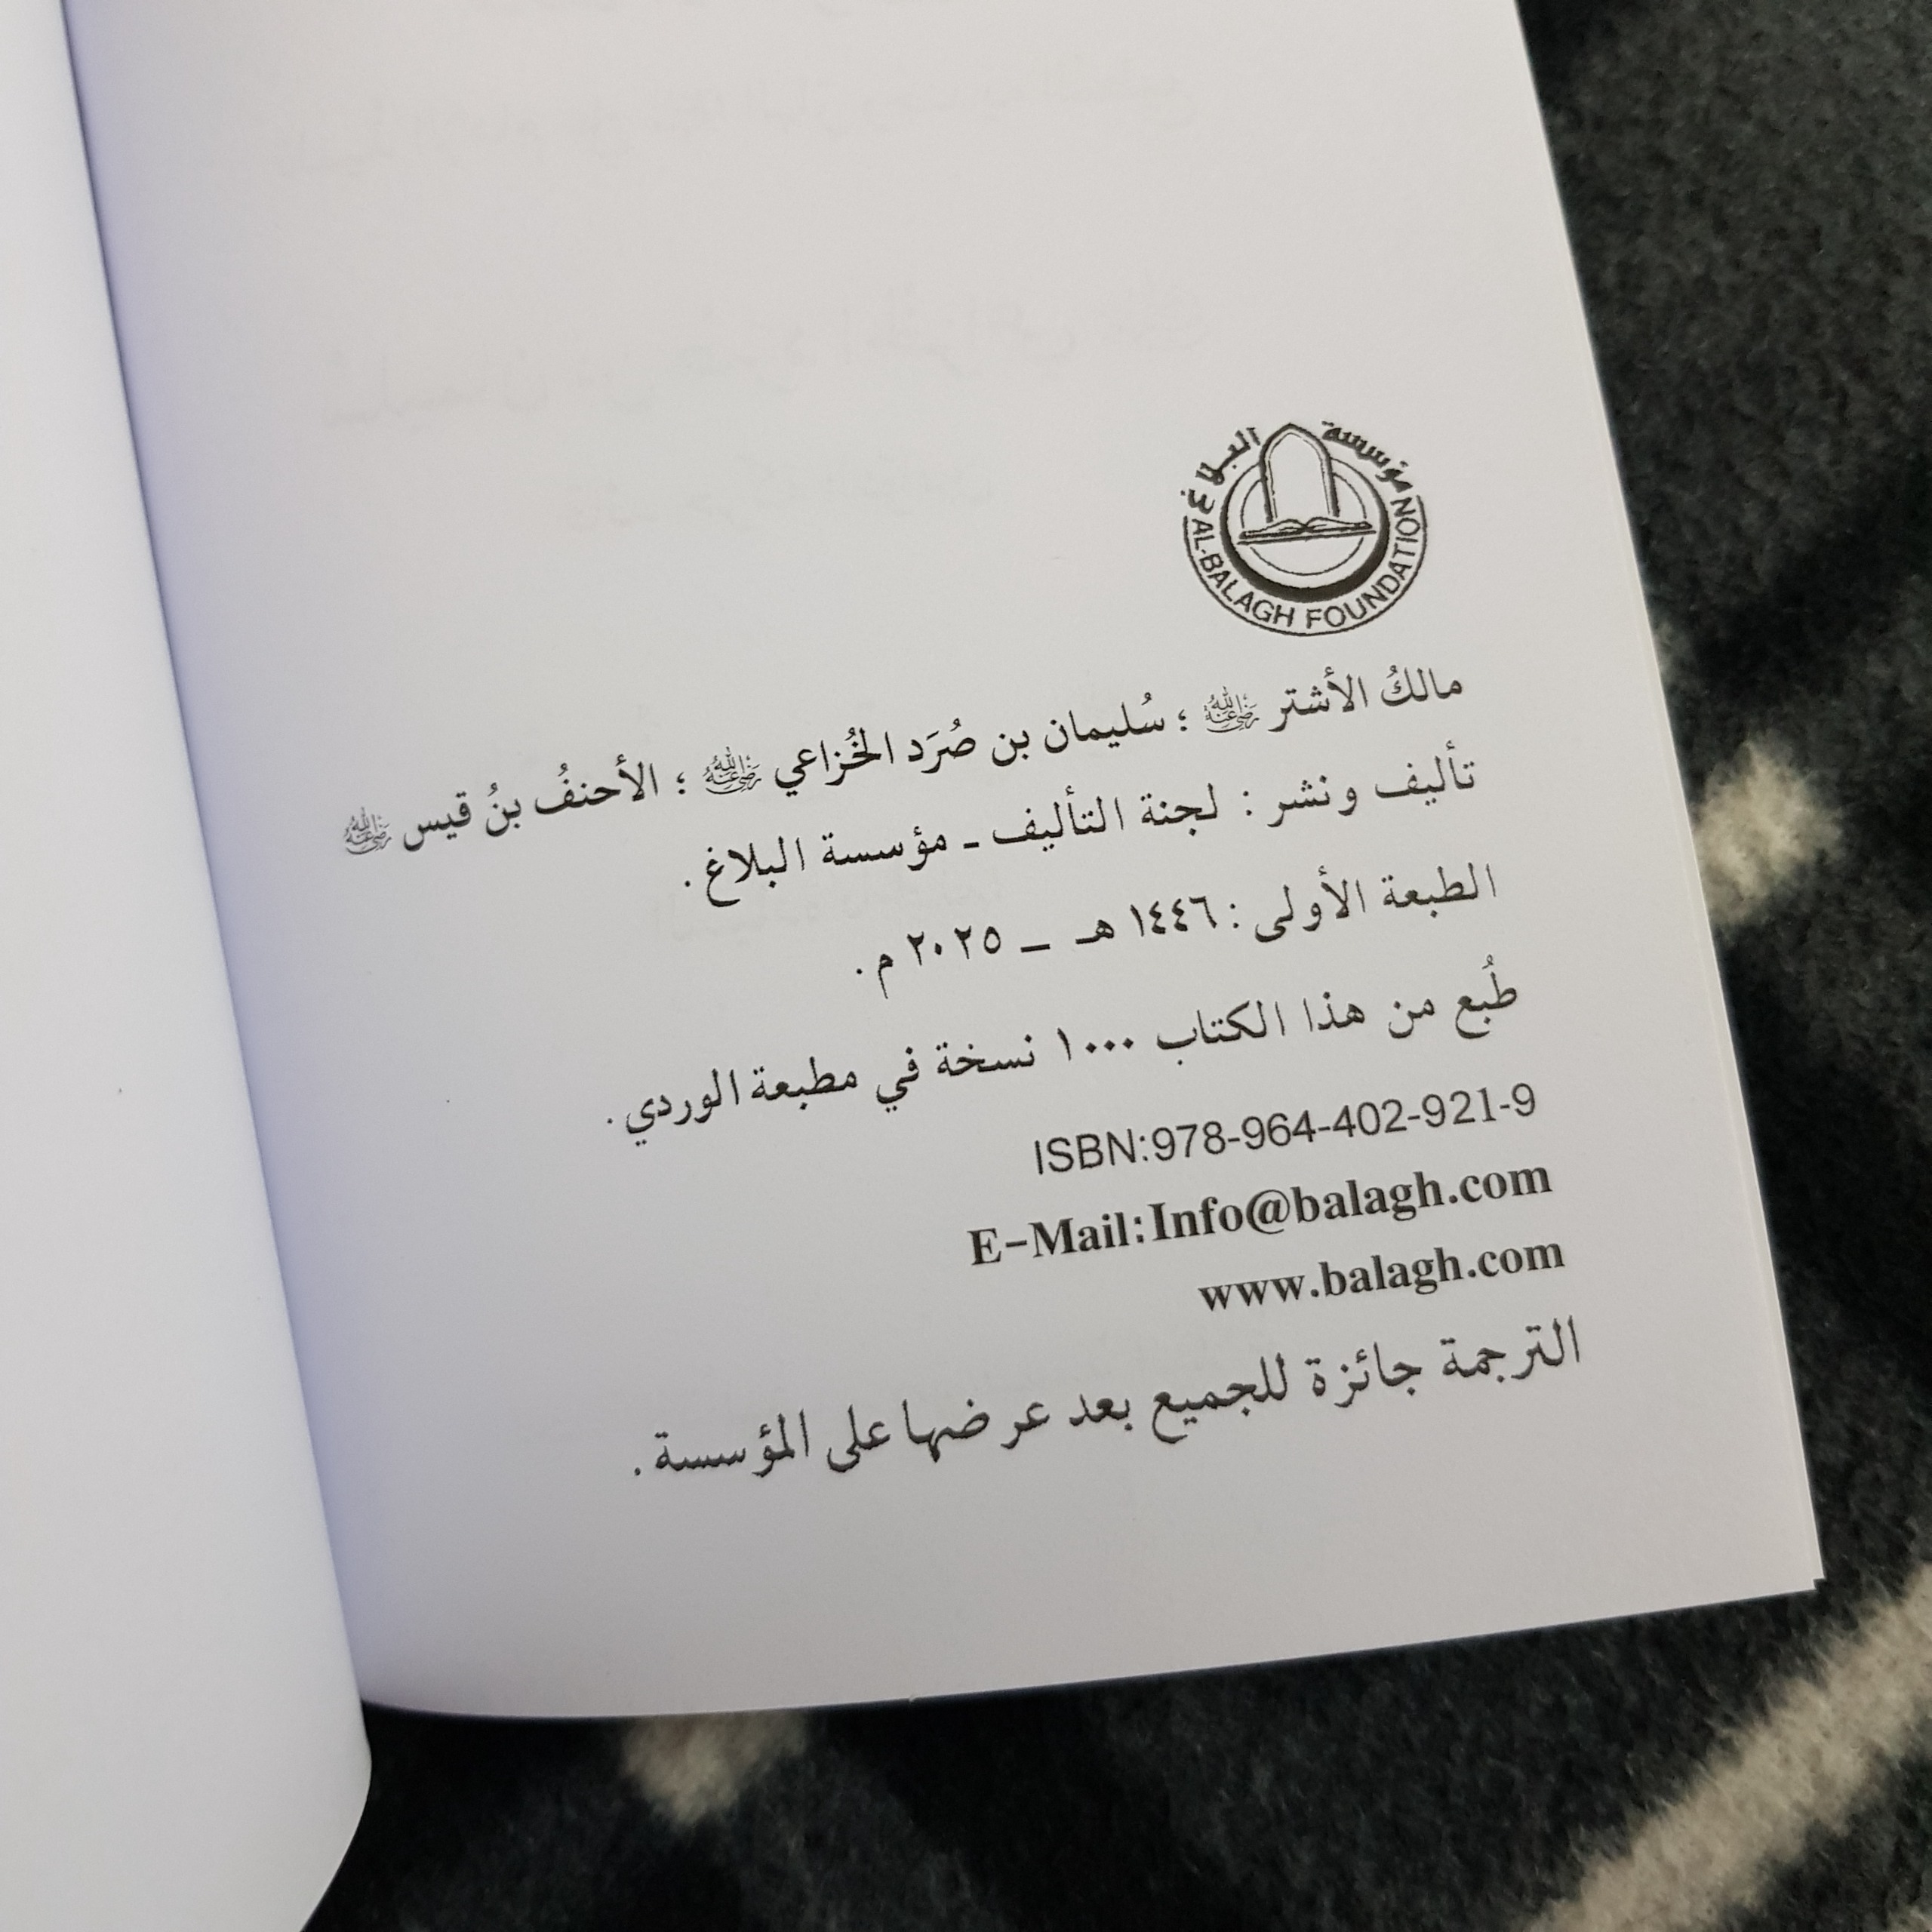 مؤسسة البلاغ
AL-BALAGH FOUNDATION
مالكُ الأشتر ﵁ ؛ سُليمان بن صُرَد الخُزاعي ﵁ ؛ الأحنفُ بنُ قيس ﵁
تأليف ونشر : لجنة التأليف ـ مؤسسة البلاغ .
الطبعة الأولى : ١٤٤٦ هـ ــ ٢٠٢٥ م .
طُبع من هذا الكتاب ١٠٠٠ نسخة في مطبعة الوردي .
ISBN:978-964-402-921-9
E-Mail:Info@balagh.com
www.balagh.com
الترجمة جائزة للجميع بعد عرضها على المؤسسة .